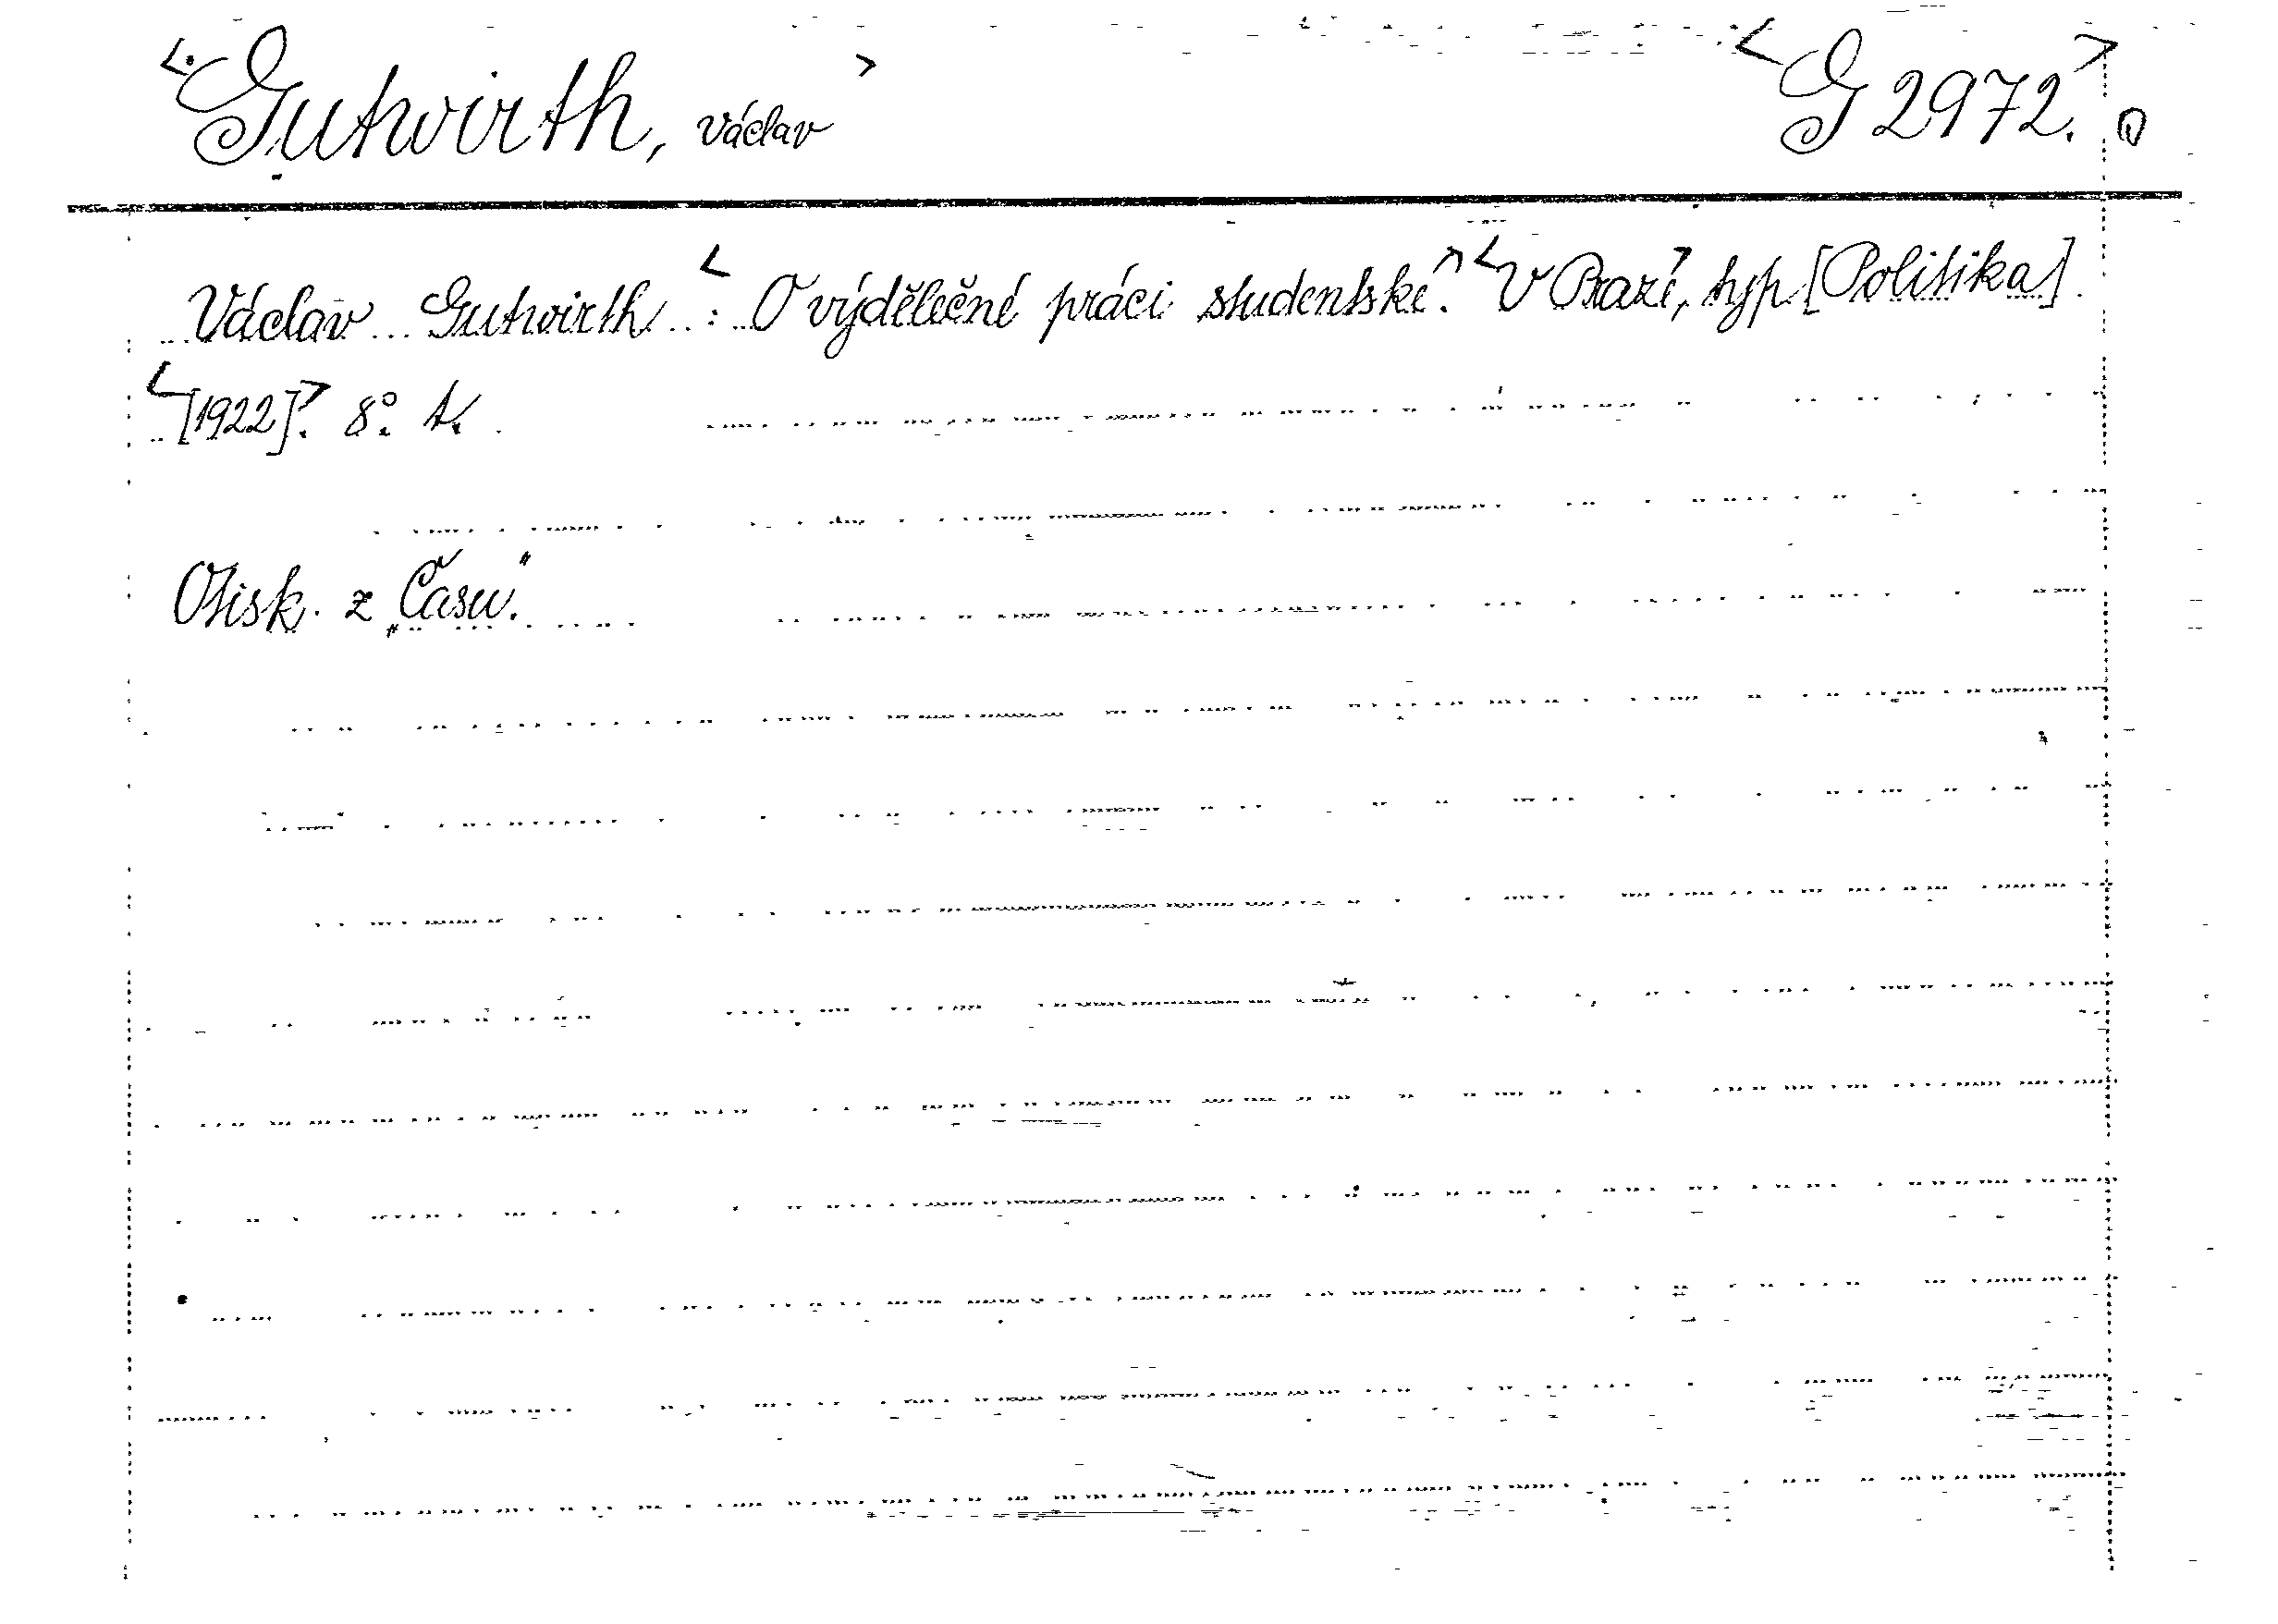 <Gutwirth, Václav> <G 2972.>
Václav Gutwirth: <O výdělečné práci studentské.> <V Praze>, typ. [Politika].
<[1922].> 8°.
Otisk. z „Času."